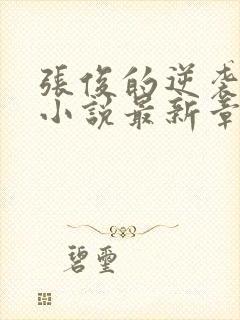 張俊的逆袭
小說最新章
碧璽